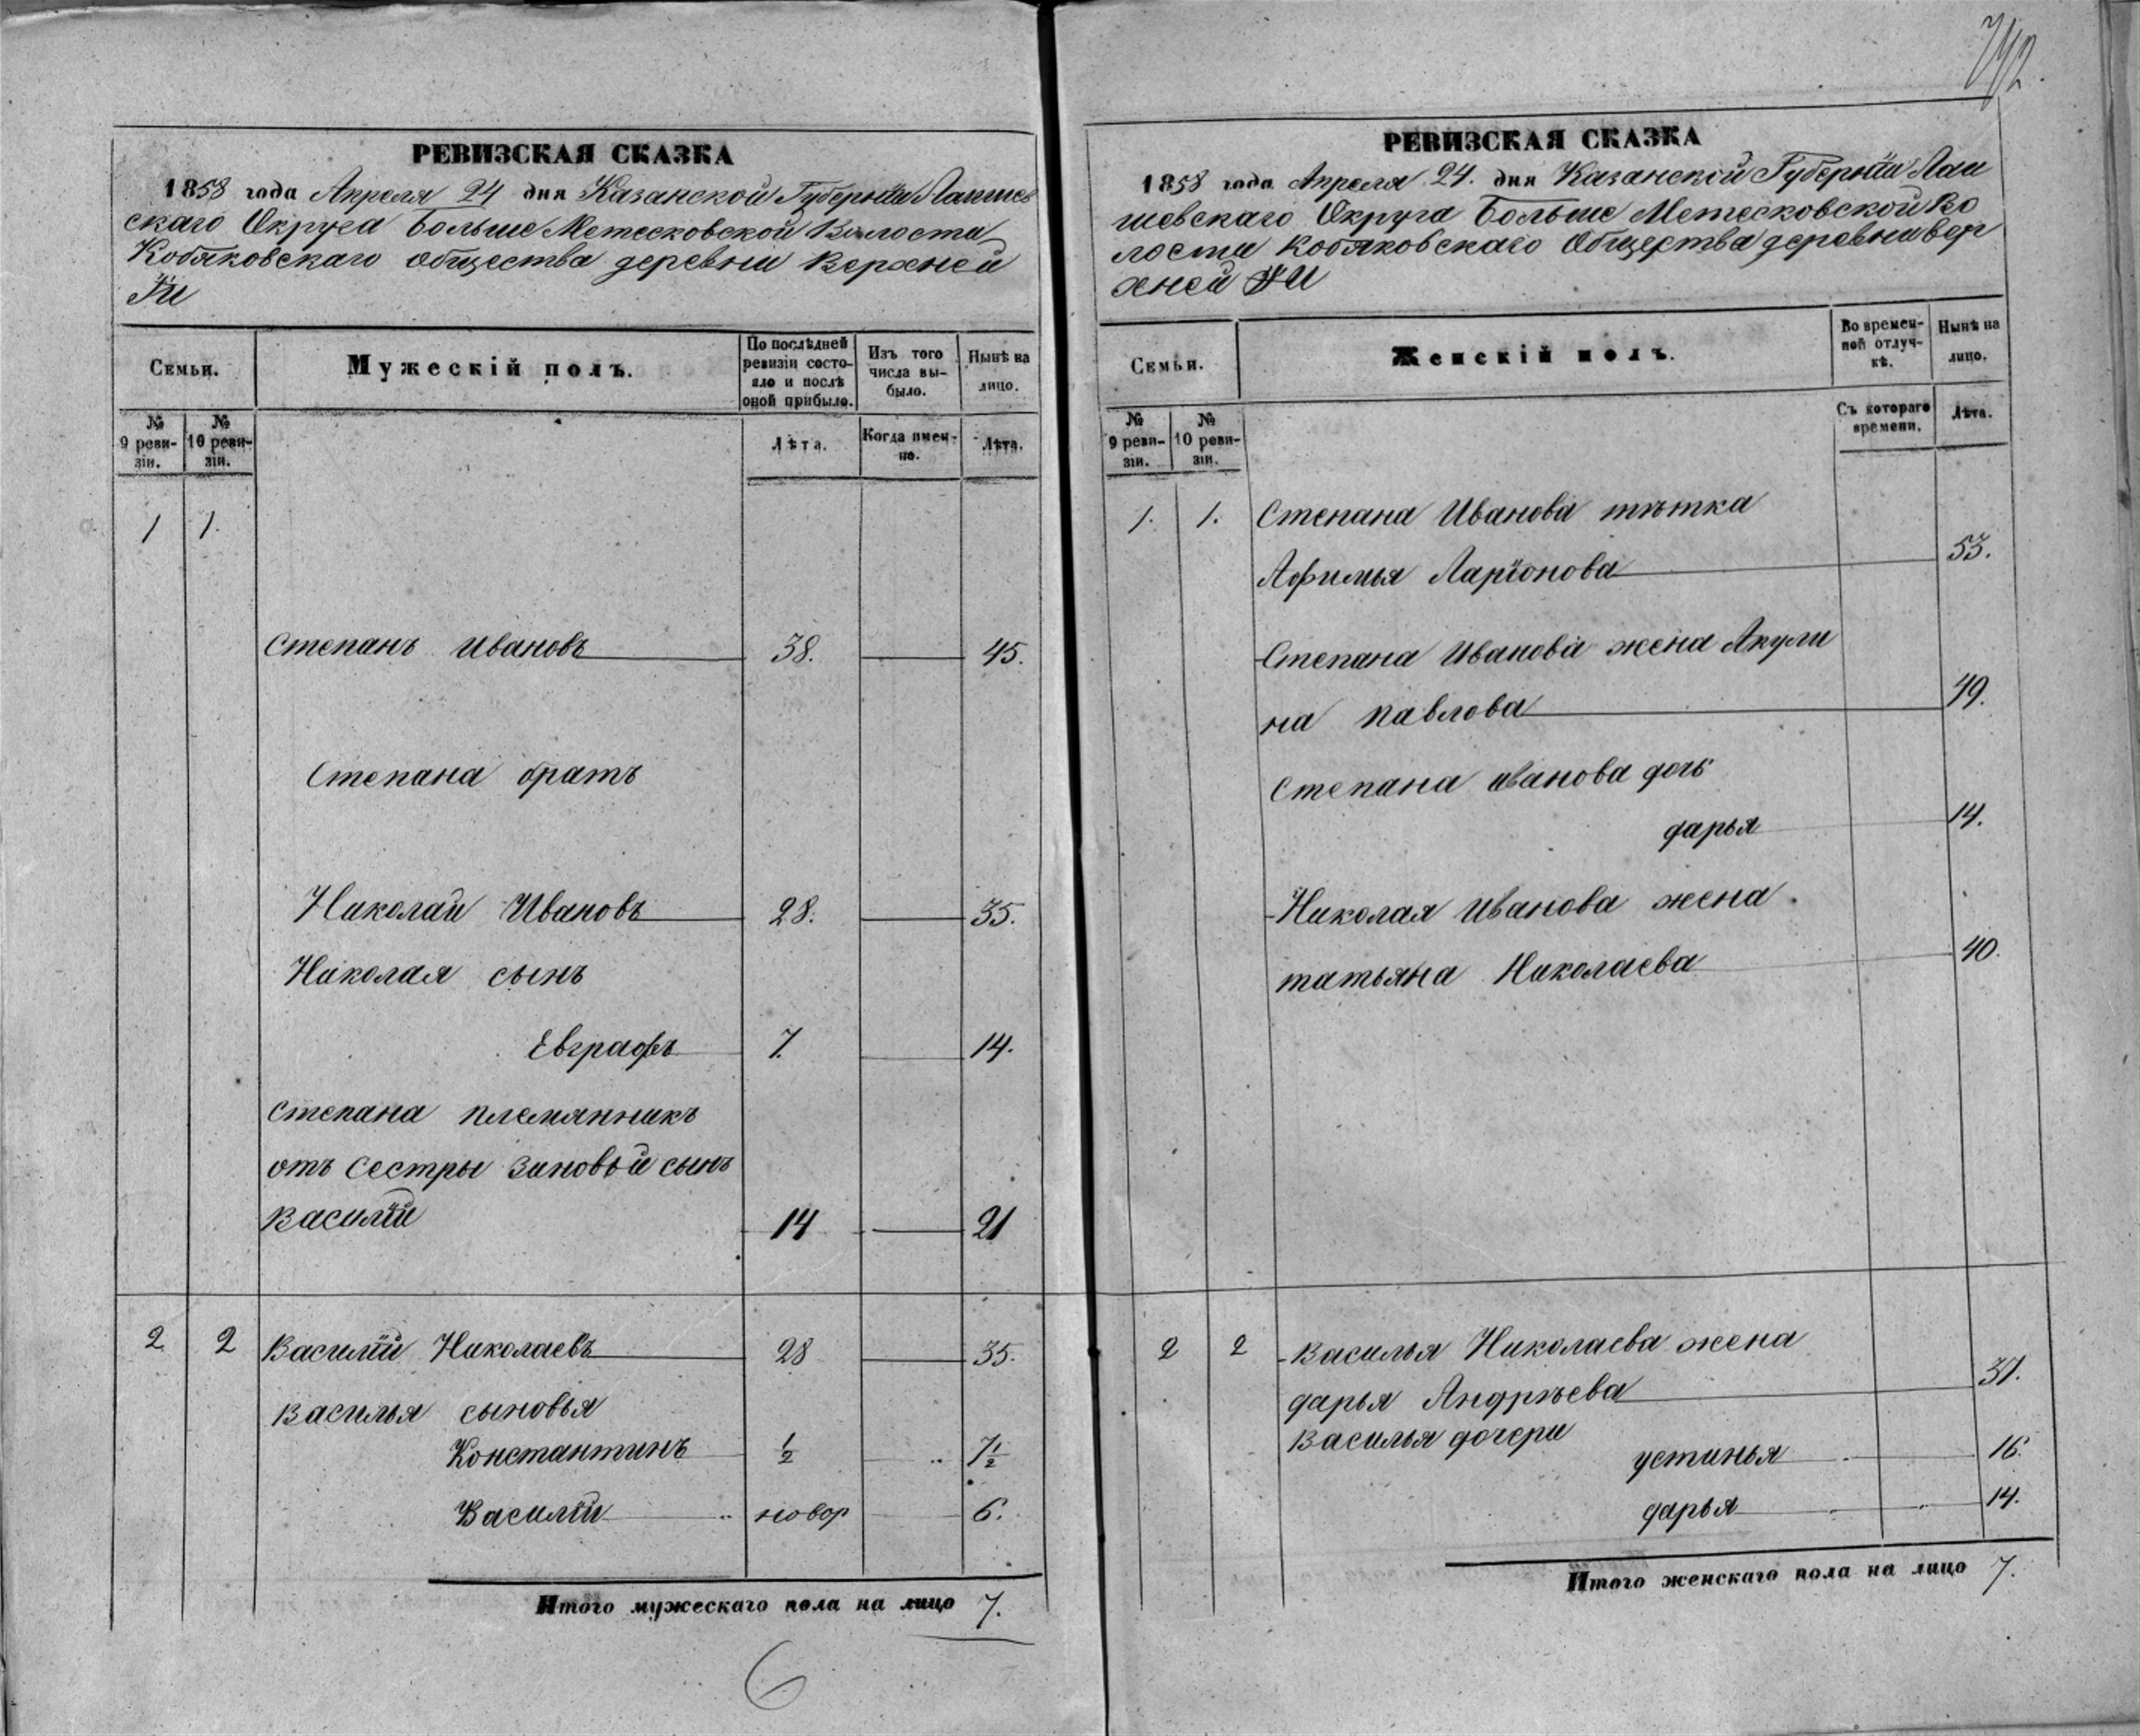 742.
РЕВИЗСКАЯ СКАЗКА
1858 года Апреля 24 дня Казанской Губернiи Лаишев
скаго Округа Больше Метесковской Волости
Кобяковскаго общества деревни Верхней
РЕВИЗСКАЯ СКАЗКА
1858 года Апреля 24. дня Казанской Губернiи Лаи
шевскаго Округа Больше Метесковской Во
лости Кобяковскаго Общества деревни вер
хней
Семьи.
Мужескiй полъ.
По послѣдней ревизiи состояло и послѣ оной прибыло.
Изъ того числа выбыло.
Нынѣ на лицо.
№ 9 ревизiи.
№ 10 ревизiи.
Лѣта.
Когда именно.
Лѣта.
1 1.
Степанъ Ивановъ 38. 45.
Степана братъ
Николай Ивановъ 28. 35.
Николая сынъ
Евграфъ 7. 14.
Степана племянникъ
отъ сестры Зиновьи сынъ
Василiй 14 21
2 2 Василiй Николаевъ 28 35.
Василья сыновья
Константинъ 1/2 7 1/2
Василiй новор 6.
Итого мужескаго пола на лицо 7.
6
Семьи.
Женскiй полъ.
Во временной отлучкѣ.
Нынѣ на лицо.
№ 9 ревизiи.
№ 10 ревизiи.
Съ котораго времени.
Лѣта.
1. 1. Степана Иванова тѣтка
Афимья Ларiонова 53.
Степана Иванова жена Акули
на павлова 49.
Степана иванова дочь
дарья 14.
Николая Иванова жена
татьяна Николаева 40.
2 2 Василья Николаева жена
дарья Андрѣева 37.
Василья дочери
устинья 16.
дарья 14.
Итого женскаго пола на лицо 7.